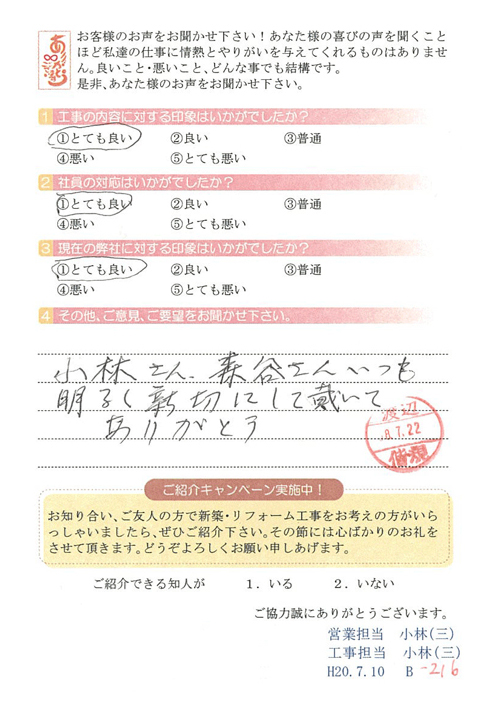 お客様のお声をお聞かせ下さい！あなた様の喜びの声を聞くこと
ほど私達の仕事に情熱とやりがいを与えてくれるものはありませ
ん。良いこと・悪いこと、どんな事でも結構です。
是非、あなた様のお声をお聞かせ下さい。
1 工事の内容に対する印象はいかがでしたか？
①とても良い ②良い ③普通
④悪い ⑤とても悪い
2 社員の対応はいかがでしたか？
①とても良い ②良い ③普通
④悪い ⑤とても悪い
3 現在の弊社に対する印象はいかがでしたか？
①とても良い ②良い ③普通
④悪い ⑤とても悪い
4 その他、ご意見、ご要望をお聞かせ下さい。
小林さん、森谷さんいつも
明るく親切にして戴いて
ありがとう
渡辺
8.7.22
ご紹介キャンペーン実施中！
お知り合い、ご友人の方で新築・リフォーム工事をお考えの方がいら
っしゃいましたら、ぜひご紹介下さい。その節には心ばかりのお礼を
させて頂きます。どうぞよろしくお願い申しあげます。
ご紹介できる知人が 1．いる 2．いない
ご協力誠にありがとうございます。
営業担当 小林(三)
工事担当 小林(三)
H20.7.10 B -216